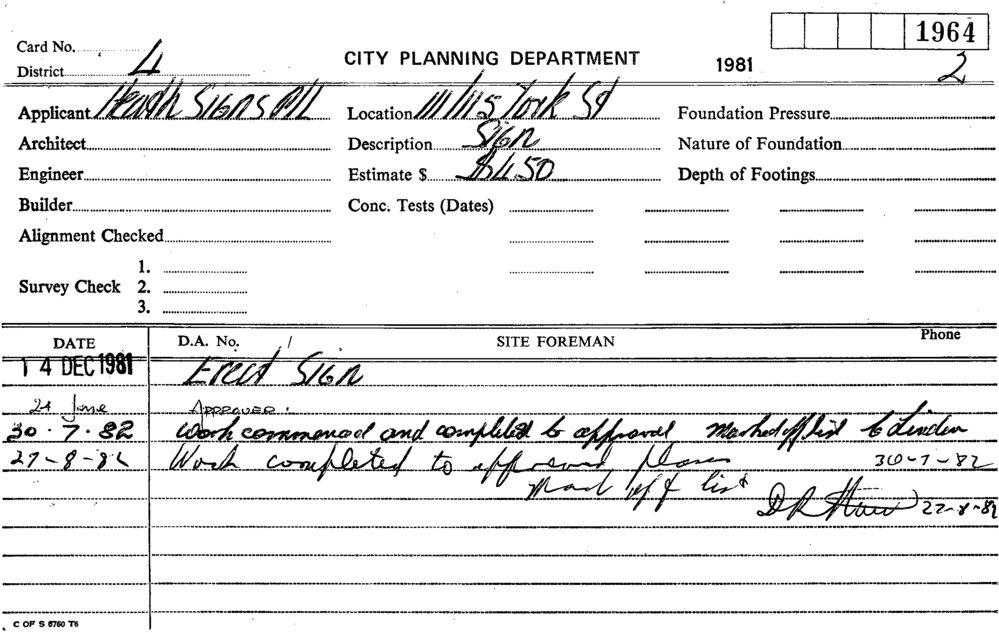 1964
Card No.
CITY PLANNING DEPARTMENT 1981 2
District 4
Applicant Heath Signs P/L Location 111/115 York St Foundation Pressure
Architect Description Sign Nature of Foundation
Engineer Estimate $ $450 Depth of Footings
Builder Conc. Tests (Dates)
Alignment Checked
1.
Survey Check 2.
3.
DATE D.A. No. / SITE FOREMAN Phone
14 DEC 1981 Erect Sign
24 June APPROVED.
30.7.82 Work commenced and completed to approval Marked off list
27-8-82 Work completed to approved plans 30-7-82
Mark off list 27-8-82
C OF S 6760 T6